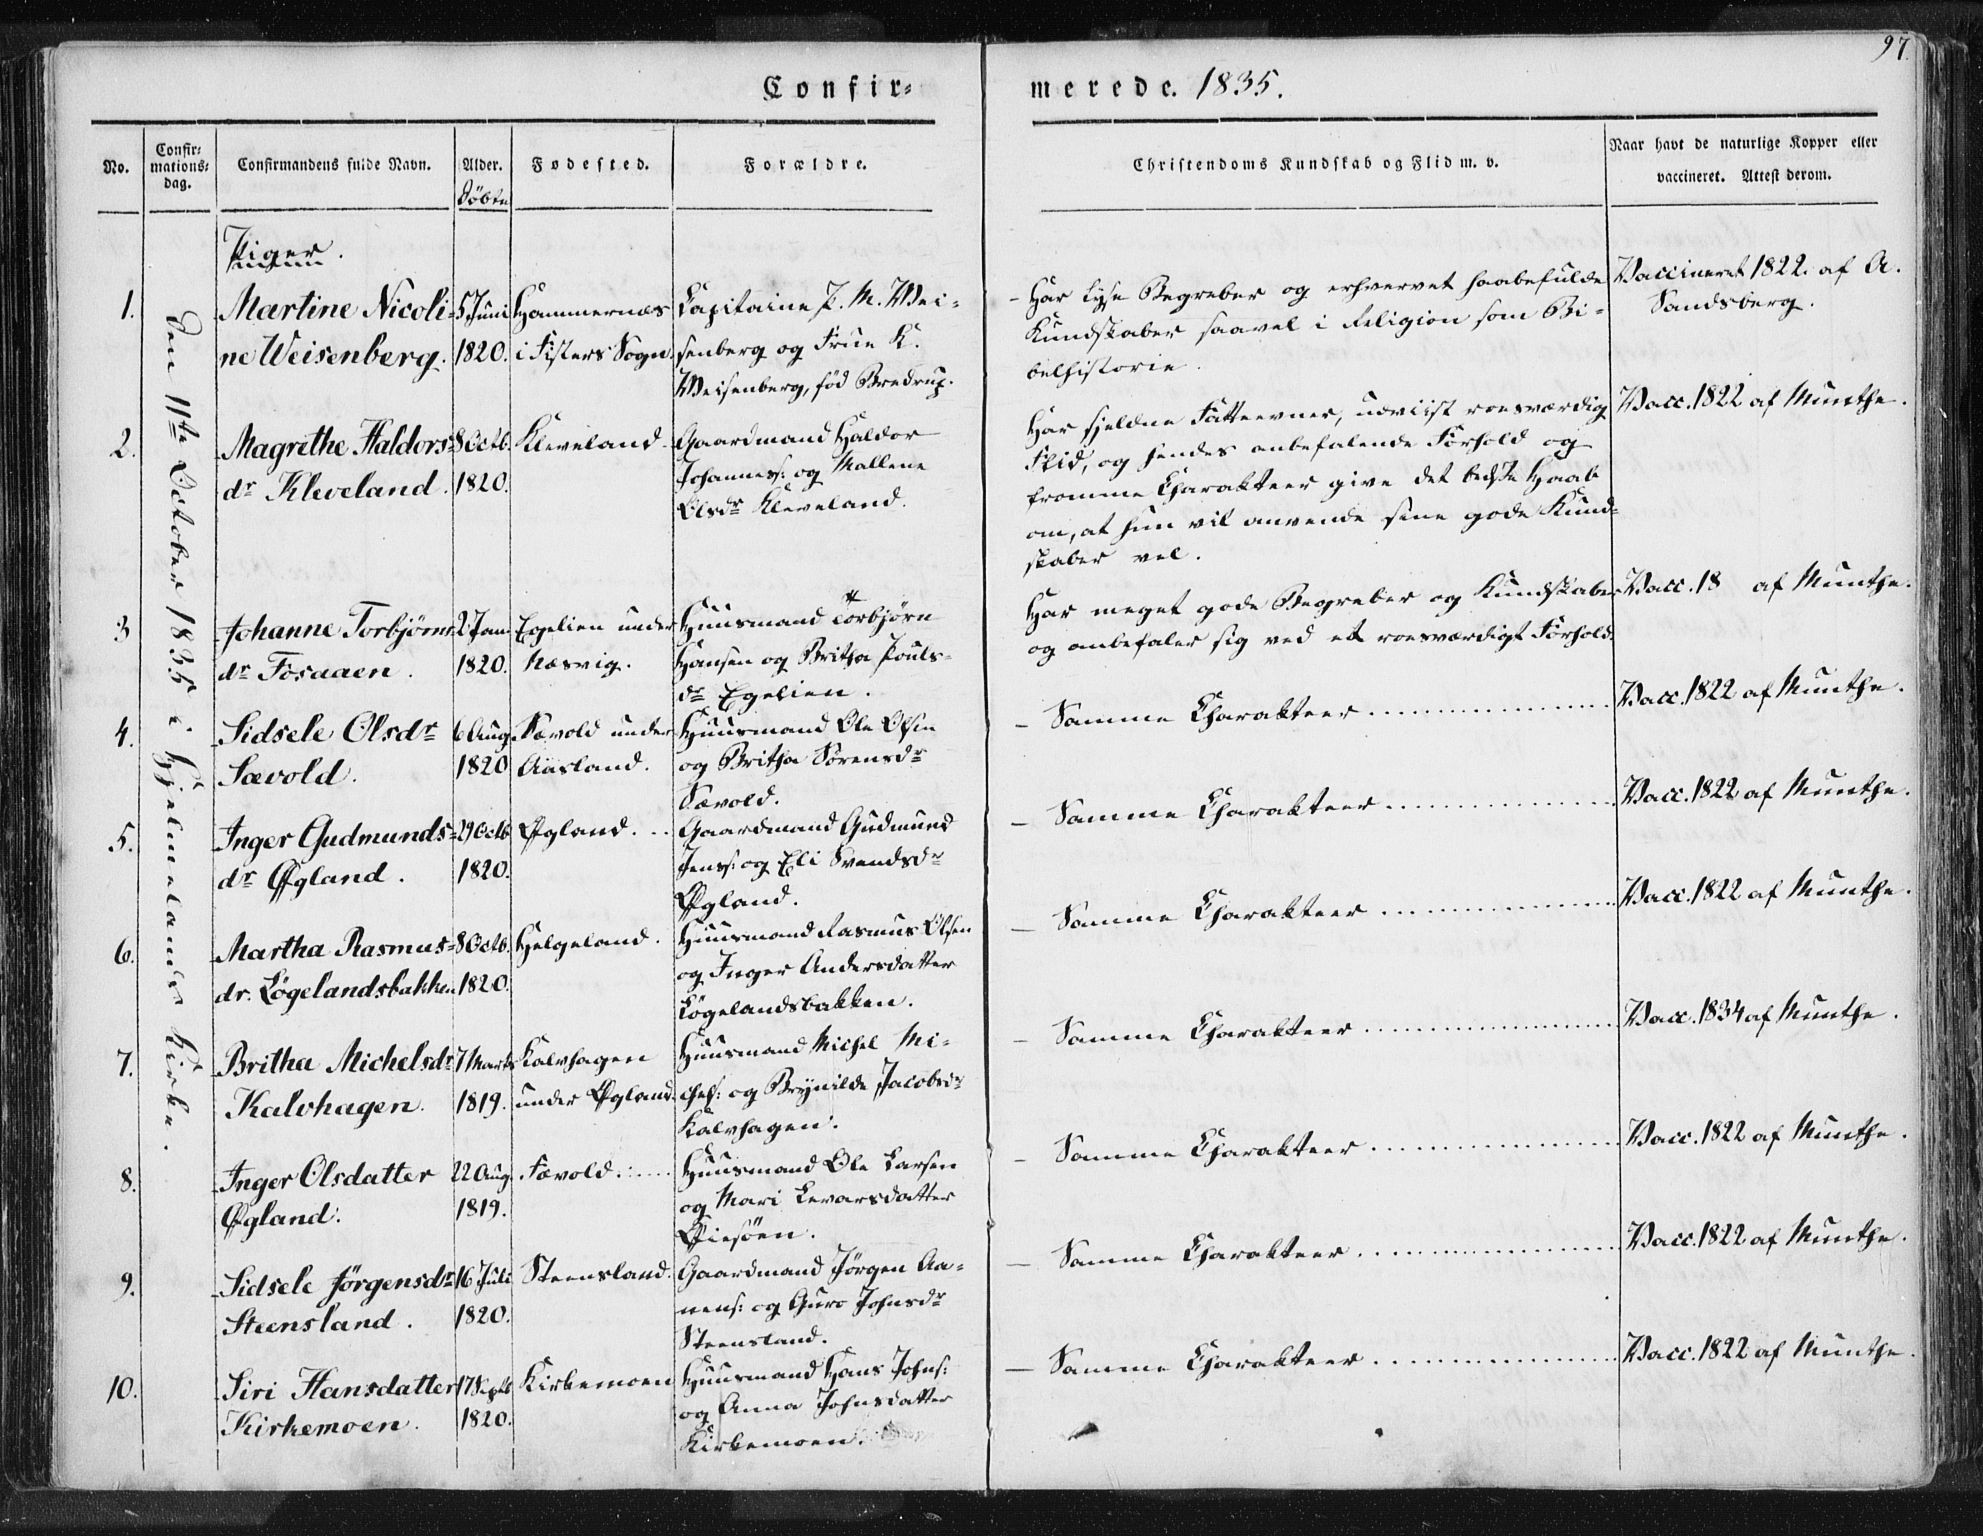 97.
Confir-
merede. 1835.
No.
Confir-
mations-
dag.
Confirmandens fulde Navn.
Alder.
Döbte
Fødested.
Forældre.
Christendoms Kundskab og Flid m. v.
Naar havt de naturlige Kopper eller
vaccineret. Attest derom.
Den 11te October 1835 i Hjelmelands Kirke.
Piger.
1.
Martine Nicoli-
ne Weisenberg.
5 Juni
1820.
Hammernæs
i Fisters Sogn.
Capitaine P. M. Wei-
senberg og Frue K.
Weisenberg, föd Bredrup.
- Har lyse Begreber og erhvervet haabefulde
Kundskaber saavel i Religion som Bi-
belhistorie.
Vaccineret 1822. af A.
Sandsberg.
2.
Magrethe Haldors-
dr Kleveland.
8 Octb.
1820.
Kleveland.
Gaardmand Haldor
Johannes: og Mallene
Olsdr Kleveland.
Har sjeldne Fatteevner, udviist roesværdig
Flid, og hendes anbefalende Forhold og
fromme Charakteer give det bedste Haab
om, at hun vil anvende sine gode Kund-
skaber vel.
Vacc. 1822 af Munthe.
3
Johanne Torbjörns
dr Fosaaen.
2 Jan.
1820.
Egelien under
Næsvig.
Huusmand Torbjörn
Hansen og Britha Pouls-
dr Egelien.
Har meget gode Begreber og Kundskaber
og anbefaler sig ved et roesværdigt Forhold.
Vacc. 18 af Munthe.
4.
Sidsele Olsdr
Sævold.
6 Aug.
1820
Sævold under
Aasland.
Huusmand Ole Olsen
og Britha Sörensdr
Sævold.
- Samme Charakteer
Vacc. 1822 af Munthe.
5.
Inger Gudmunds-
dr Øgland.
29 Octb
1820.
Øgland.
Gaardmand Gudmund
Jens: og Eli Svendsdr
Øgland.
- Samme Charakteer
Vacc. 1822 af Munthe.
6.
Martha Rasmus-
dr. Løgelandsbakken
8 Octb.
1820.
Helgeland.
Huusmand Rasmus Olsen
og Inger Andersdatter
Løgelandsbakken.
- Samme Charakteer
Vacc. 1822 af Munthe.
7.
Britha Michelsdr
Kalvhagen.
7 Marts
1819.
Kalvhagen
under Øgland.
Huusmand Michel Mi-
chel: og Brynilde Jacobsdr
Kalvhagen.
- Samme Charakteer
Vacc. 1834 af Munthe.
8.
Inger Olsdatter
Øgland.
22 Aug.
1819.
Sævold.
Huusmand Ole Larsen
og Mari Levarsdatter
- Samme Charakteer
Vacc. 1822 af Munthe.
9.
Sidsele Jørgensdr
Steensland.
16 Juli
1820.
Steensland.
Gaardmand Jörgen Aa-
nens: og Guro Johnsdr
Steensland.
- Samme Charakteer
Vacc. 1822 af Munthe.
10.
Siri Hansdatter
Kirkemoen.
17 Septb
1820.
Kirkemoen
Huusmand Hans Johns:
og Anna Johnsdatter
Kirkemoen.
- Samme Charakteer
Vacc. 1822 af Munthe.